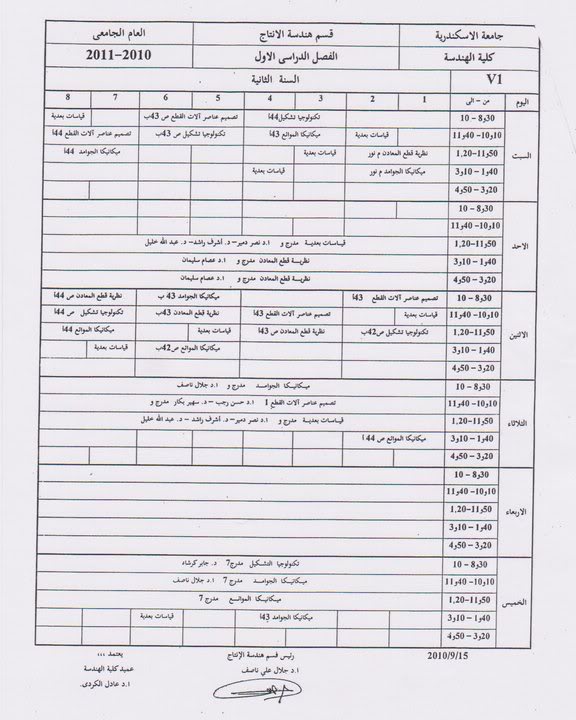 جامعة الاسكندرية قسم هندسة الانتاج العام الجامعى
كلية الهندسة الفصل الدراسى الاول 2010–2011
V1 السنة الثانية
اليوم من – الى 1 2 3 4 5 6 7 8
السبت
8و30 – 10 تكنولوجيا تشكيل 44أ تصميم عناصر آلات القطع ص 43ب قياسات بعدية
10و10- 11و40 قياسات بعدية ميكانيكا الموائع 43أ تكنولوجيا تشكيل ص 43ب تصميم عناصر آلات القطع 44أ
11و50–1,20 نظرية قطع المعادن م نور قياسات بعدية ميكانيكا الجوامد 44أ
1و40 – 3و10 ميكانيكا الجوامد م نور قياسات بعدية
3و20 – 4و50
الاحد
8و30 – 10
10و10- 11و40
11و50–1,20 قياسات بعدية مدرج و ا.د نصر دمير– د. أشرف راشد– د. عبد الله خليل
1و40 – 3و10 نظرية قطع المعادن مدرج و ا.د عصام سليمان
3و20 – 4و50 نظرية قطع المعادن مدرج و ا.د عصام سليمان
الاثنين
8و30 – 10 تصميم عناصر آلات القطع 43أ ميكانيكا الجوامد 43 ب نظرية قطع المعادن ص 44أ
10و10- 11و40 قياسات بعدية تصميم عناصر آلات القطع 44أ نظرية قطع المعادن 43ب تكنولوجيا تشكيل ص 44أ
11و50–1,20 تكنولوجيا تشكيل ص42ب نظرية قطع المعادن 43أ قياسات بعدية ميكانيكا الموائع 44أ
1و40 – 3و10 ميكانيكا الموائع ص42ب قياسات بعدية
3و20 – 4و50
الثلاثاء
8و30 – 10 ميكانيكا الجوامد مدرج و ا.د جلال ناصف
10و10- 11و40 تصميم عناصر آلات القطع 1 ا.د حسن رجب – د. سهير بكار مدرج و
11و50–1,20 قياسات بعدية مدرج و ا.د نصر دمير– د. أشرف راشد– د. عبد الله خليل
1و40 – 3و10 ميكانيكا الموائع ص 44 أ
3و20 – 4و50
الاربعاء
8و30 – 10
10و10- 11و40
11و50–1,20
1و40 – 3و10
3و20 – 4و50
الخميس
8و30 – 10 تكنولوجيا التشكيل مدرج7 د. جابر كرشاه
10و10- 11و40 ميكانيكا الجوامد مدرج 7 ا.د جلال ناصف
11و50–1,20 ميكانيكا الموائع مدرج 7
1و40 – 3و10 ميكانيكا الجوامد 43أ قياسات بعدية
3و20 – 4و50
2010/9/15 رئيس قسم هندسة الإنتاج يعتمد ،،،
ا.د جلال علي ناصف عميد كلية الهندسة
ا.د عادل الكردى